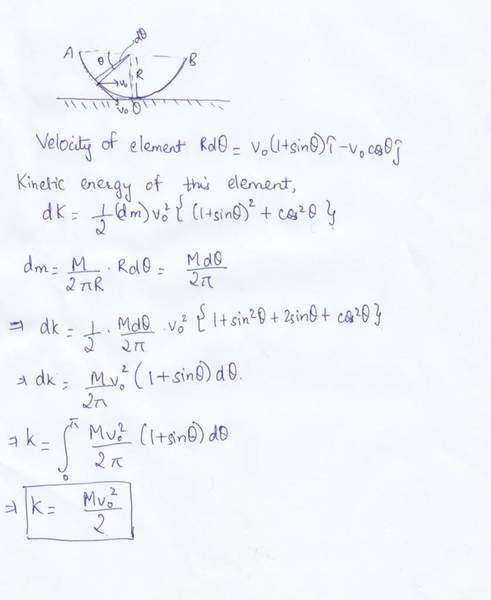 A θ dθ B
R
v₀
v₀ O
Velocity of element Rdθ = v₀(1+sinθ)î - v₀cosθĵ
Kinetic energy of this element,
dk = 1/2 (dm) v₀² { (1+sinθ)² + cos²θ }
dm = M/2πR · Rdθ = Mdθ/2π
⇒ dk = 1/2 · Mdθ/2π · v₀² { 1+sin²θ + 2sinθ + cos²θ }
⇒ dk = Mv₀²/2π (1+sinθ) dθ.
⇒ k = ∫₀^π Mv₀²/2π (1+sinθ) dθ
⇒ k = Mv₀²/2